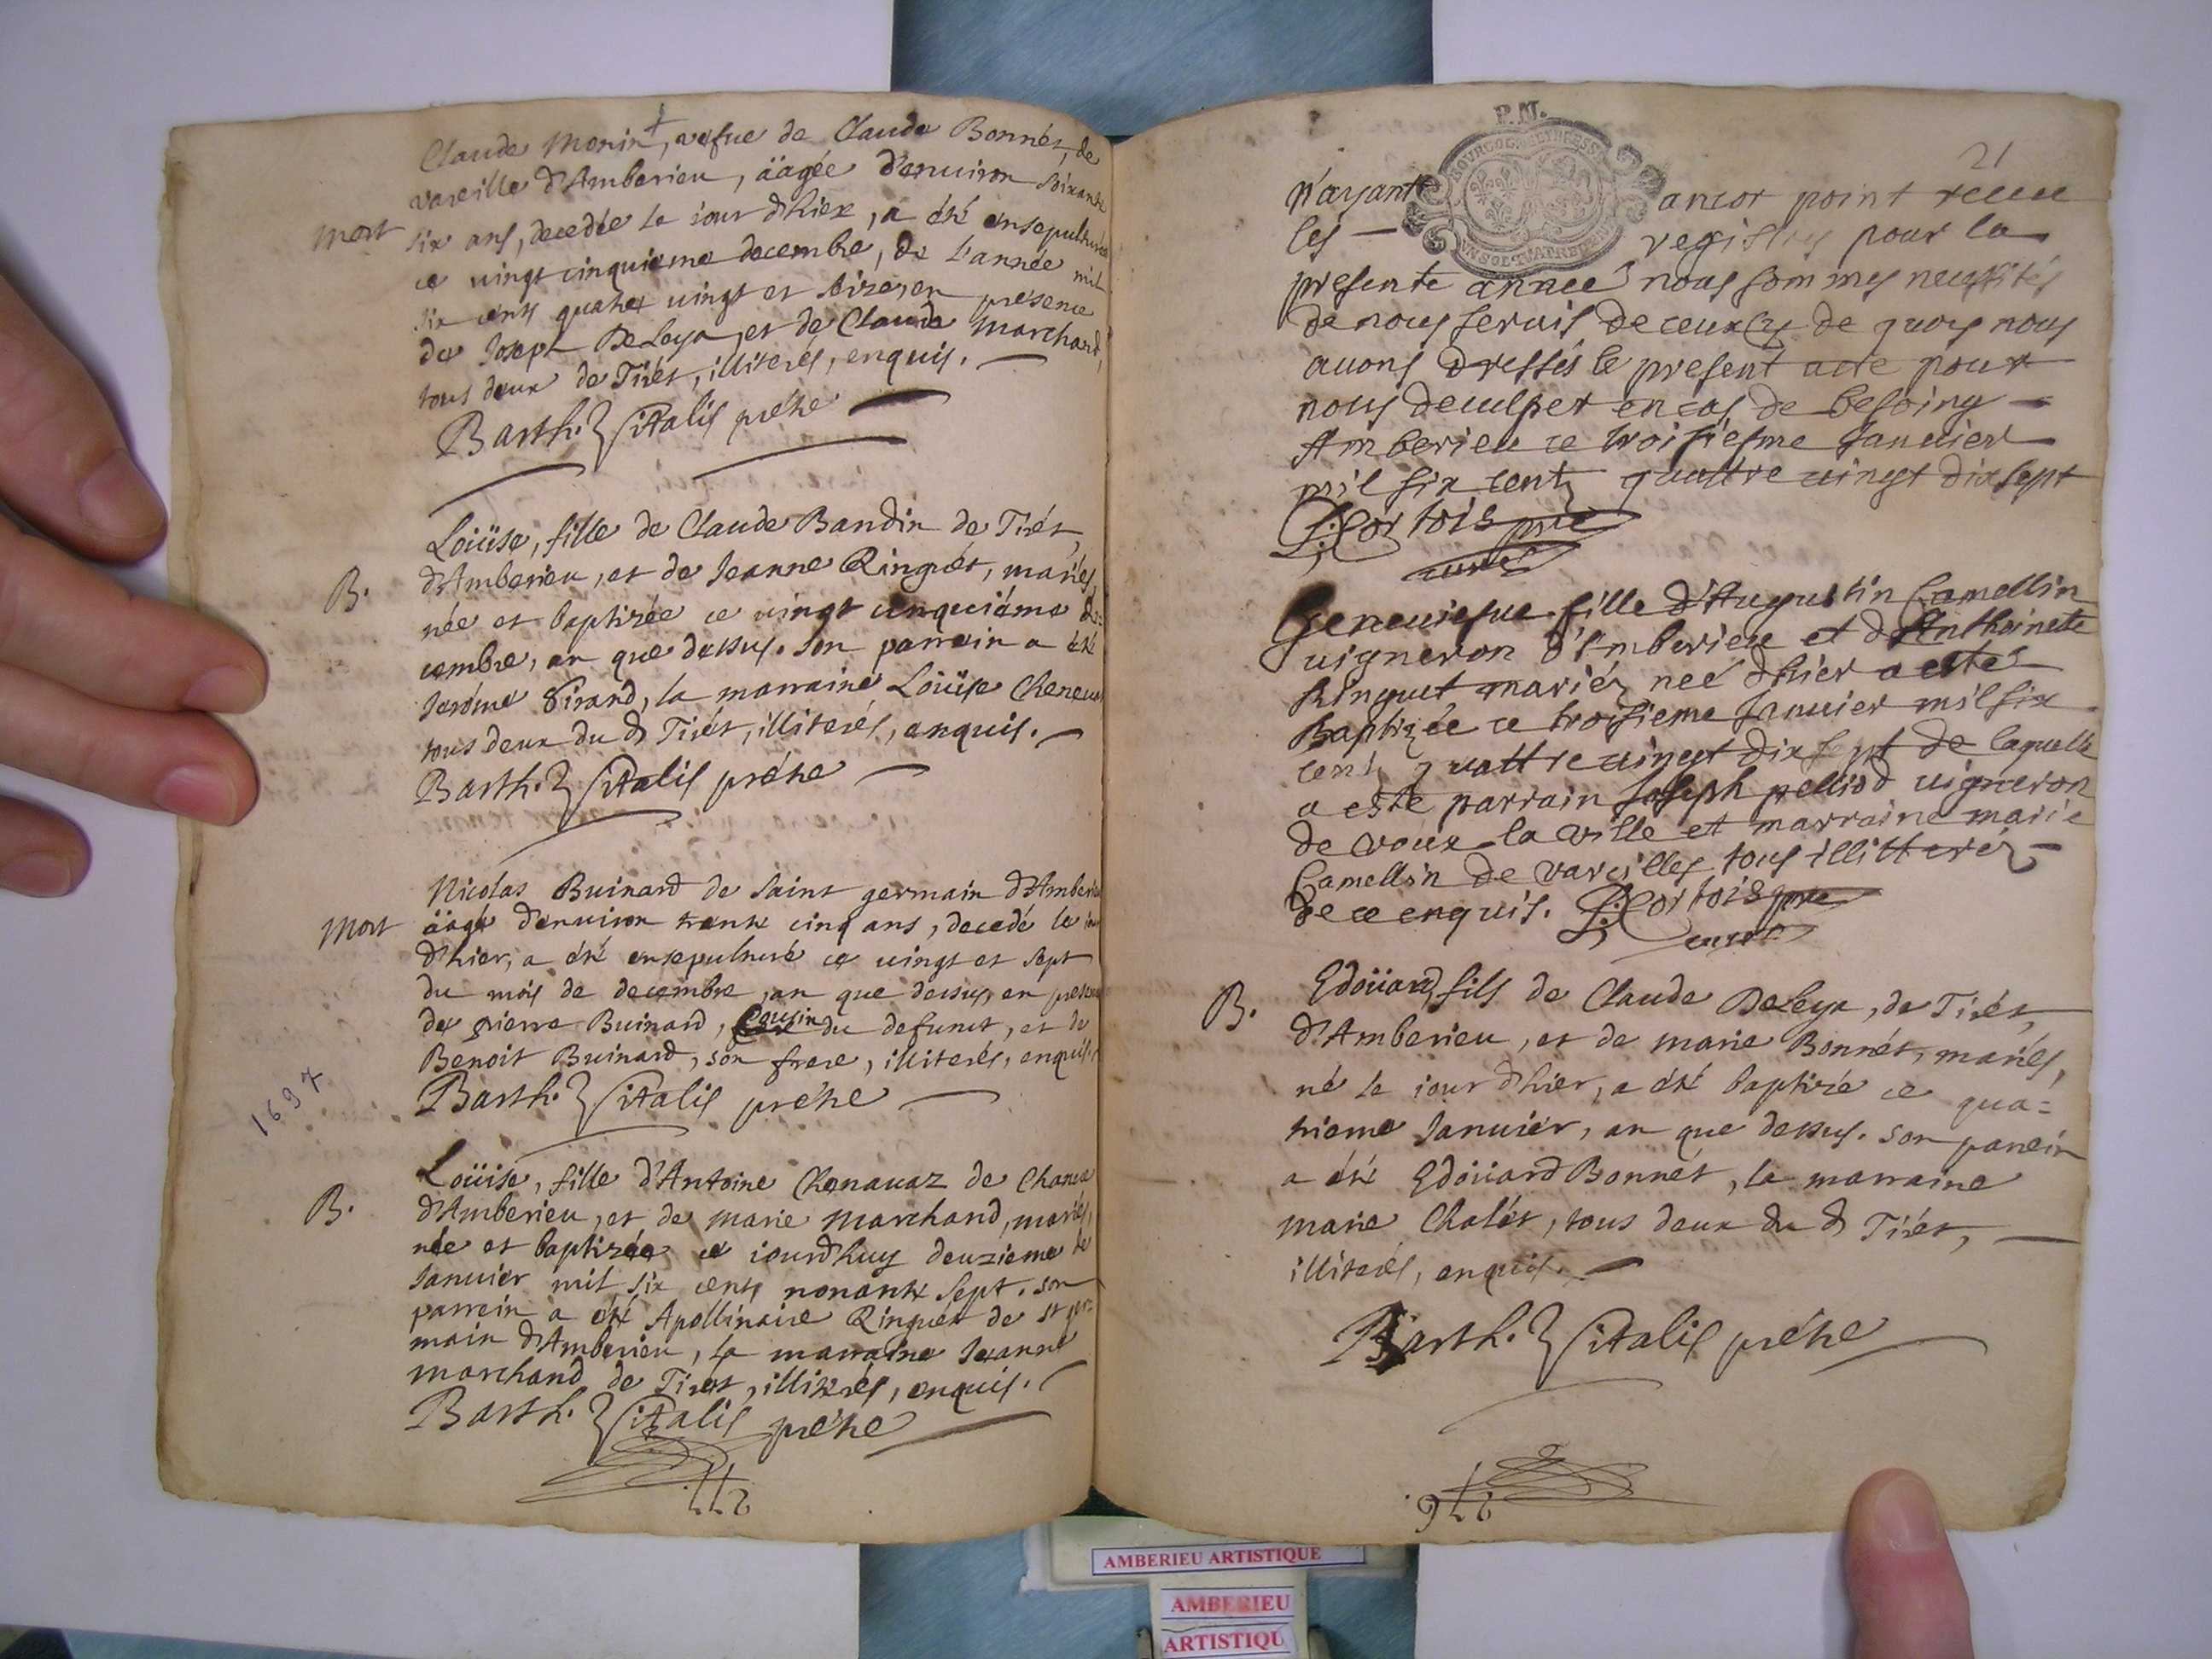 Claude Monin, vefue de Claude Bonnet, de
vareille d'Amberieu, äagée d'enuiron soixante
mort
six ans, decedée le iour d'hier, a été ensepulturée
ce vingt cinquieme decembre, de l'année mil
six cents quatre vingt et seize, en presence
de Joseph DeLeya, et de Claude Marchand,
tous deux de Tirét, illiterés, enquis.
Barth. Vitalis prétre
Loüise, fille de Claude Bandin de Tirét,
B.
d'Amberieu, et de Jeanne Ringuét, mariés,
née et baptizée ce vingt cinquiéme de=
cembre, an que dessus. son parrain a été
Jerôme Tirand, la marraine Loüise
tous deux du d Tirét, illiterés, enquis.
Barth. Vitalis prétre
Nicolas Buinard de saint germain d'Amberieu
mort
äagé d'enuiron trente cinq ans, decedé le iour
d'hier, a été ensepulturé ce vingt et sept
du mois de decembre, an que dessus, en presence
de pierre Buinard, Cousin du defunct, et de
Benoit Buinard, son frere, illiterés, enquis.
Barth. Vitalis prétre
1697
Loüise, fille d'Antoine Chenauaz de
B.
d'Amberieu, et de marie Marchand, mariés,
née et baptizée ce iourdhuy deuzieme de
Januier mil six cents nonante sept. son
parrein a été Apollinaire Ringuét de st ger=
main d'Amberieu, la marraine Jeanne
marchand de Tiret, illiterés, enquis.
Barth. Vitalis prétre
P.N.
BOURGOG. BRESSE
UN SOL
21
N'ayant ancor point receu
les registres pour la
presente année nous sommes necessités
de nous seruis de ceux cy de quoy nous
auons dressés le present acte pour
nous deculper en cas de besoing
Amberieu ce troisiesme Januier
mil six cent quattre vingt dix sept
Cortois pre
curé
Geneuiefue fille d'Augustin Camellin
vigneron d'Amberieu et d'Anthoinete
Ringuet mariéz née d'hier a esté
Baptizée ce troisieme Januier mil six
cent quattre vingt dix sept de laquelle
a esté parrain Joseph pelliod vigneron
de vaux la ville et marraine marie
Camellin de vareilles tous illitteréz
de ce enquis. Cortois pre
curé
Edoüard, fils de Claude DeLeya, de Tirét,
B.
d'Amberieu, et de marie Bonnét, mariés,
né le iour d'hier, a été baptizé ce qua=
trieme Januier, an que dessus. son parrein
a été Edoüard Bonnét, la marraine
marie Chalét, tous deux du d Tirét,
illiterés, enquis.
Barth. Vitalis prétre
AMBERIEU ARTISTIQUE
AMBERIEU
ARTISTIQU